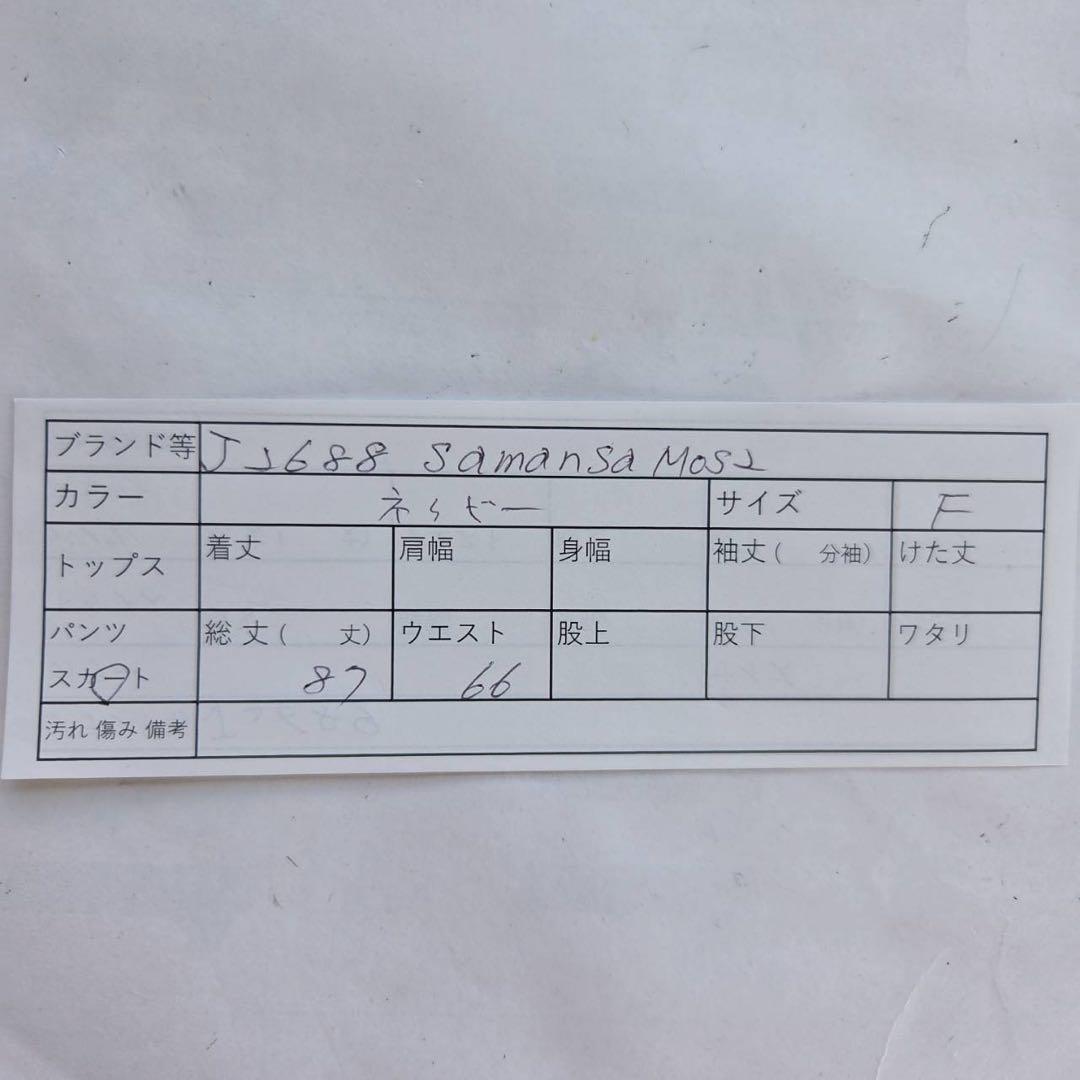 ブランド等 J2688 SamanSa MoS2
カラー ネイビー サイズ F
トップス 着丈 肩幅 身幅 袖丈( 分袖) けた丈
パンツ 総丈( 丈) ウエスト 股上 股下 ワタリ
スカート 87 66
汚れ 傷み 備考